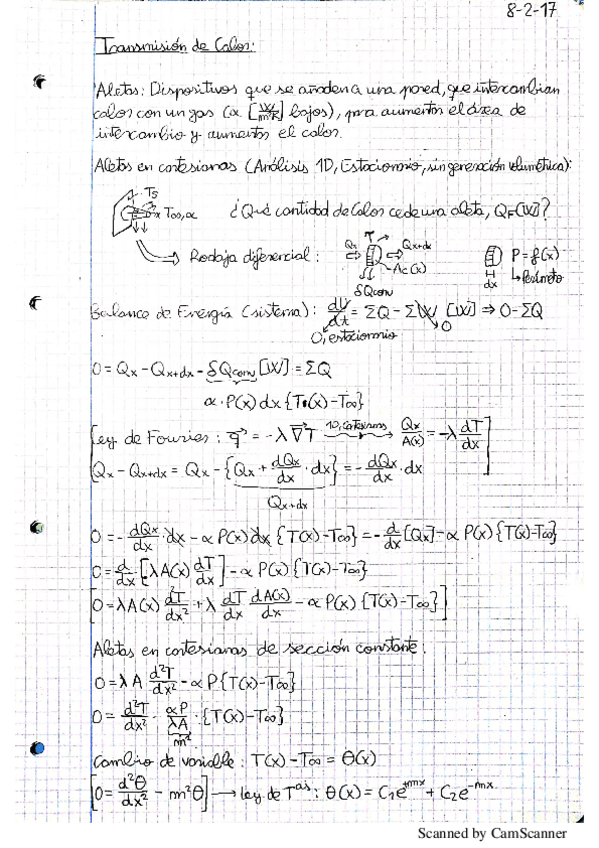 8-2-17
Transmisión de Calor:
Aletas: Dispositivos que se añaden a una pared, que intercambian
calor con un gas (α [W/m²K] bajos), para aumentar el área de
intercambio y aumentar el calor.
Aletas en cartesianas (Análisis 1D, Estacionario, sin generación volumétrica):
Ts
T∞, α
¿Qué cantidad de Calor cede una aleta, QF [W]?
Rodaja diferencial:
Qx
Qx+dx
Ac(x)
δQconv
dx
P = f(x)
Perímetro
Balance de Energía (sistema): dU/dt = ΣQ - ΣW [W] ⇒ 0 = ΣQ
0, estacionario
0
0 = Qx - Qx+dx - δQconv [W] = ΣQ
α·P(x)dx{Ts(x) - T∞}
[Ley de Fourier: q⃗ = -λ∇⃗T 1D, cartesianas → Qx/A(x) = -λ dT/dx
Qx - Qx+dx = Qx - {Qx + dQx/dx · dx} = - dQx/dx · dx]
Qx+dx
0 = - dQx/dx · dx - α P(x) dx {T(x) - T∞} = - d/dx [Qx] - α P(x) {T(x) - T∞}
0 = d/dx [λA(x) dT/dx] - α P(x) {T(x) - T∞}
[0 = λA(x) dT/dx² + λ dT/dx dA(x)/dx - α P(x) {T(x) - T∞}]
Aletas en cartesianas de sección constante:
0 = λA d²T/dx² - αP{T(x) - T∞}
0 = d²T/dx² - αP/λA · {T(x) - T∞}
m²
Cambio de variable: T(x) - T∞ = θ(x)
[0 = d²θ/dx² - m²θ] → ley de Tas: θ(x) = C₁e^+mx + C₂e^-mx
Scanned by CamScanner